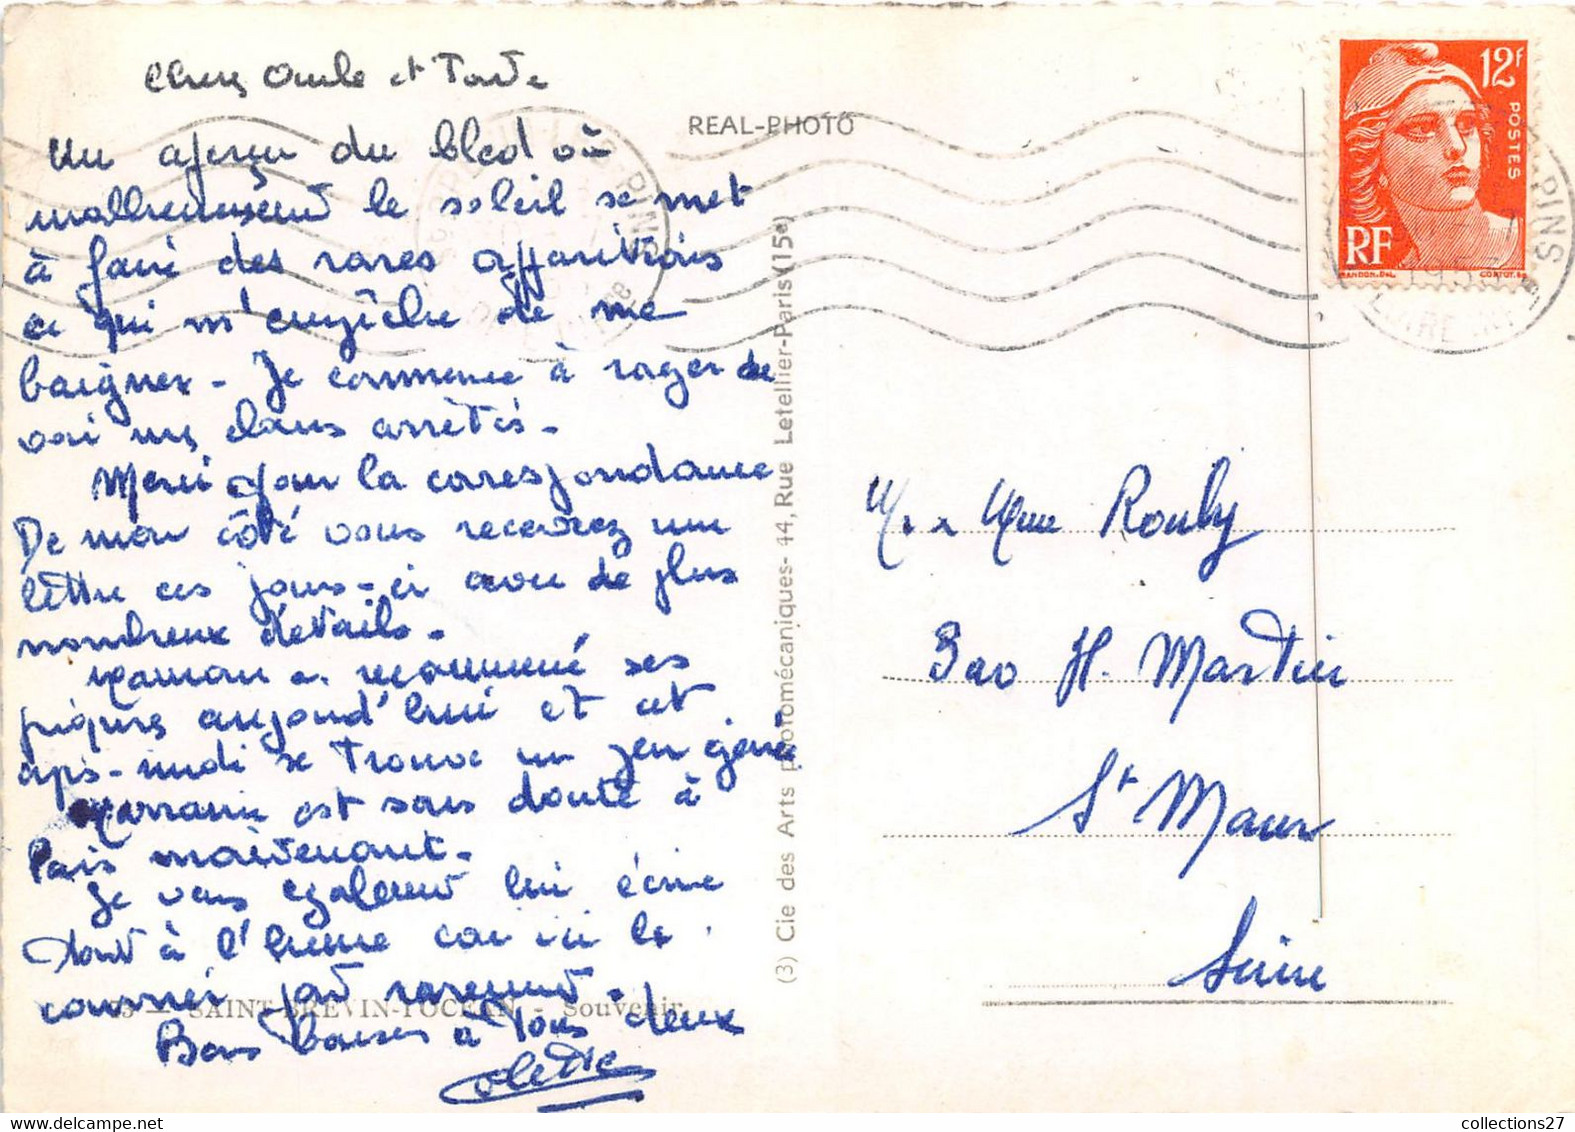 Chers Oncle et Tante
Un aperçu du bled où
malheureusement le soleil se met
à faire des rares apparitions
ce qui m'empêche de me
baigner - Je commence à rager de
voir mes dans arrêtés.
Merci pour la correspondance
De mon côté vous recevrez une
lettre ces jours-ci avec de plus
nombreux détails.
Maman a recommencé ses
piqures aujourd'hui et cet
après-midi se trouve un peu gênée
est sans doute à
Paris maintenant.
Je vais également lui écrire
tout à l'heure car ici le
courrier part rarement.
Bons baisers à tous deux
Colette
REAL-PHOTO
(3) Cie des Arts photomécaniques - 44, Rue Letellier-Paris (15e)
95 - SAINT-BREVIN-l'OCEAN - Souvenir.
12F
POSTES
RF
GANDON.DEL
CORTOT.SC
PINS
LOIRE INF
M. & Mme Rouby
3 H. Martin
St Maur
Seine
collections27